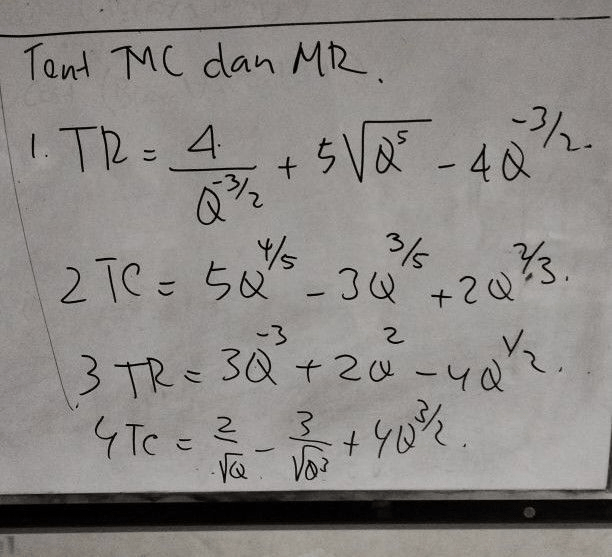 Tent MC dan MR.
1. TR = 4/Q^{-3/2} + 5√Q^5 - 4Q^{-3/2}.
2 TC = 5Q^{4/5} - 3Q^{3/5} + 2Q^{2/3}.
3 TR = 3Q^{-3} + 2Q^2 - 4Q^{1/2}.
4 TC = 2/√Q - 3/√Q^3 + 4Q^{3/2}.